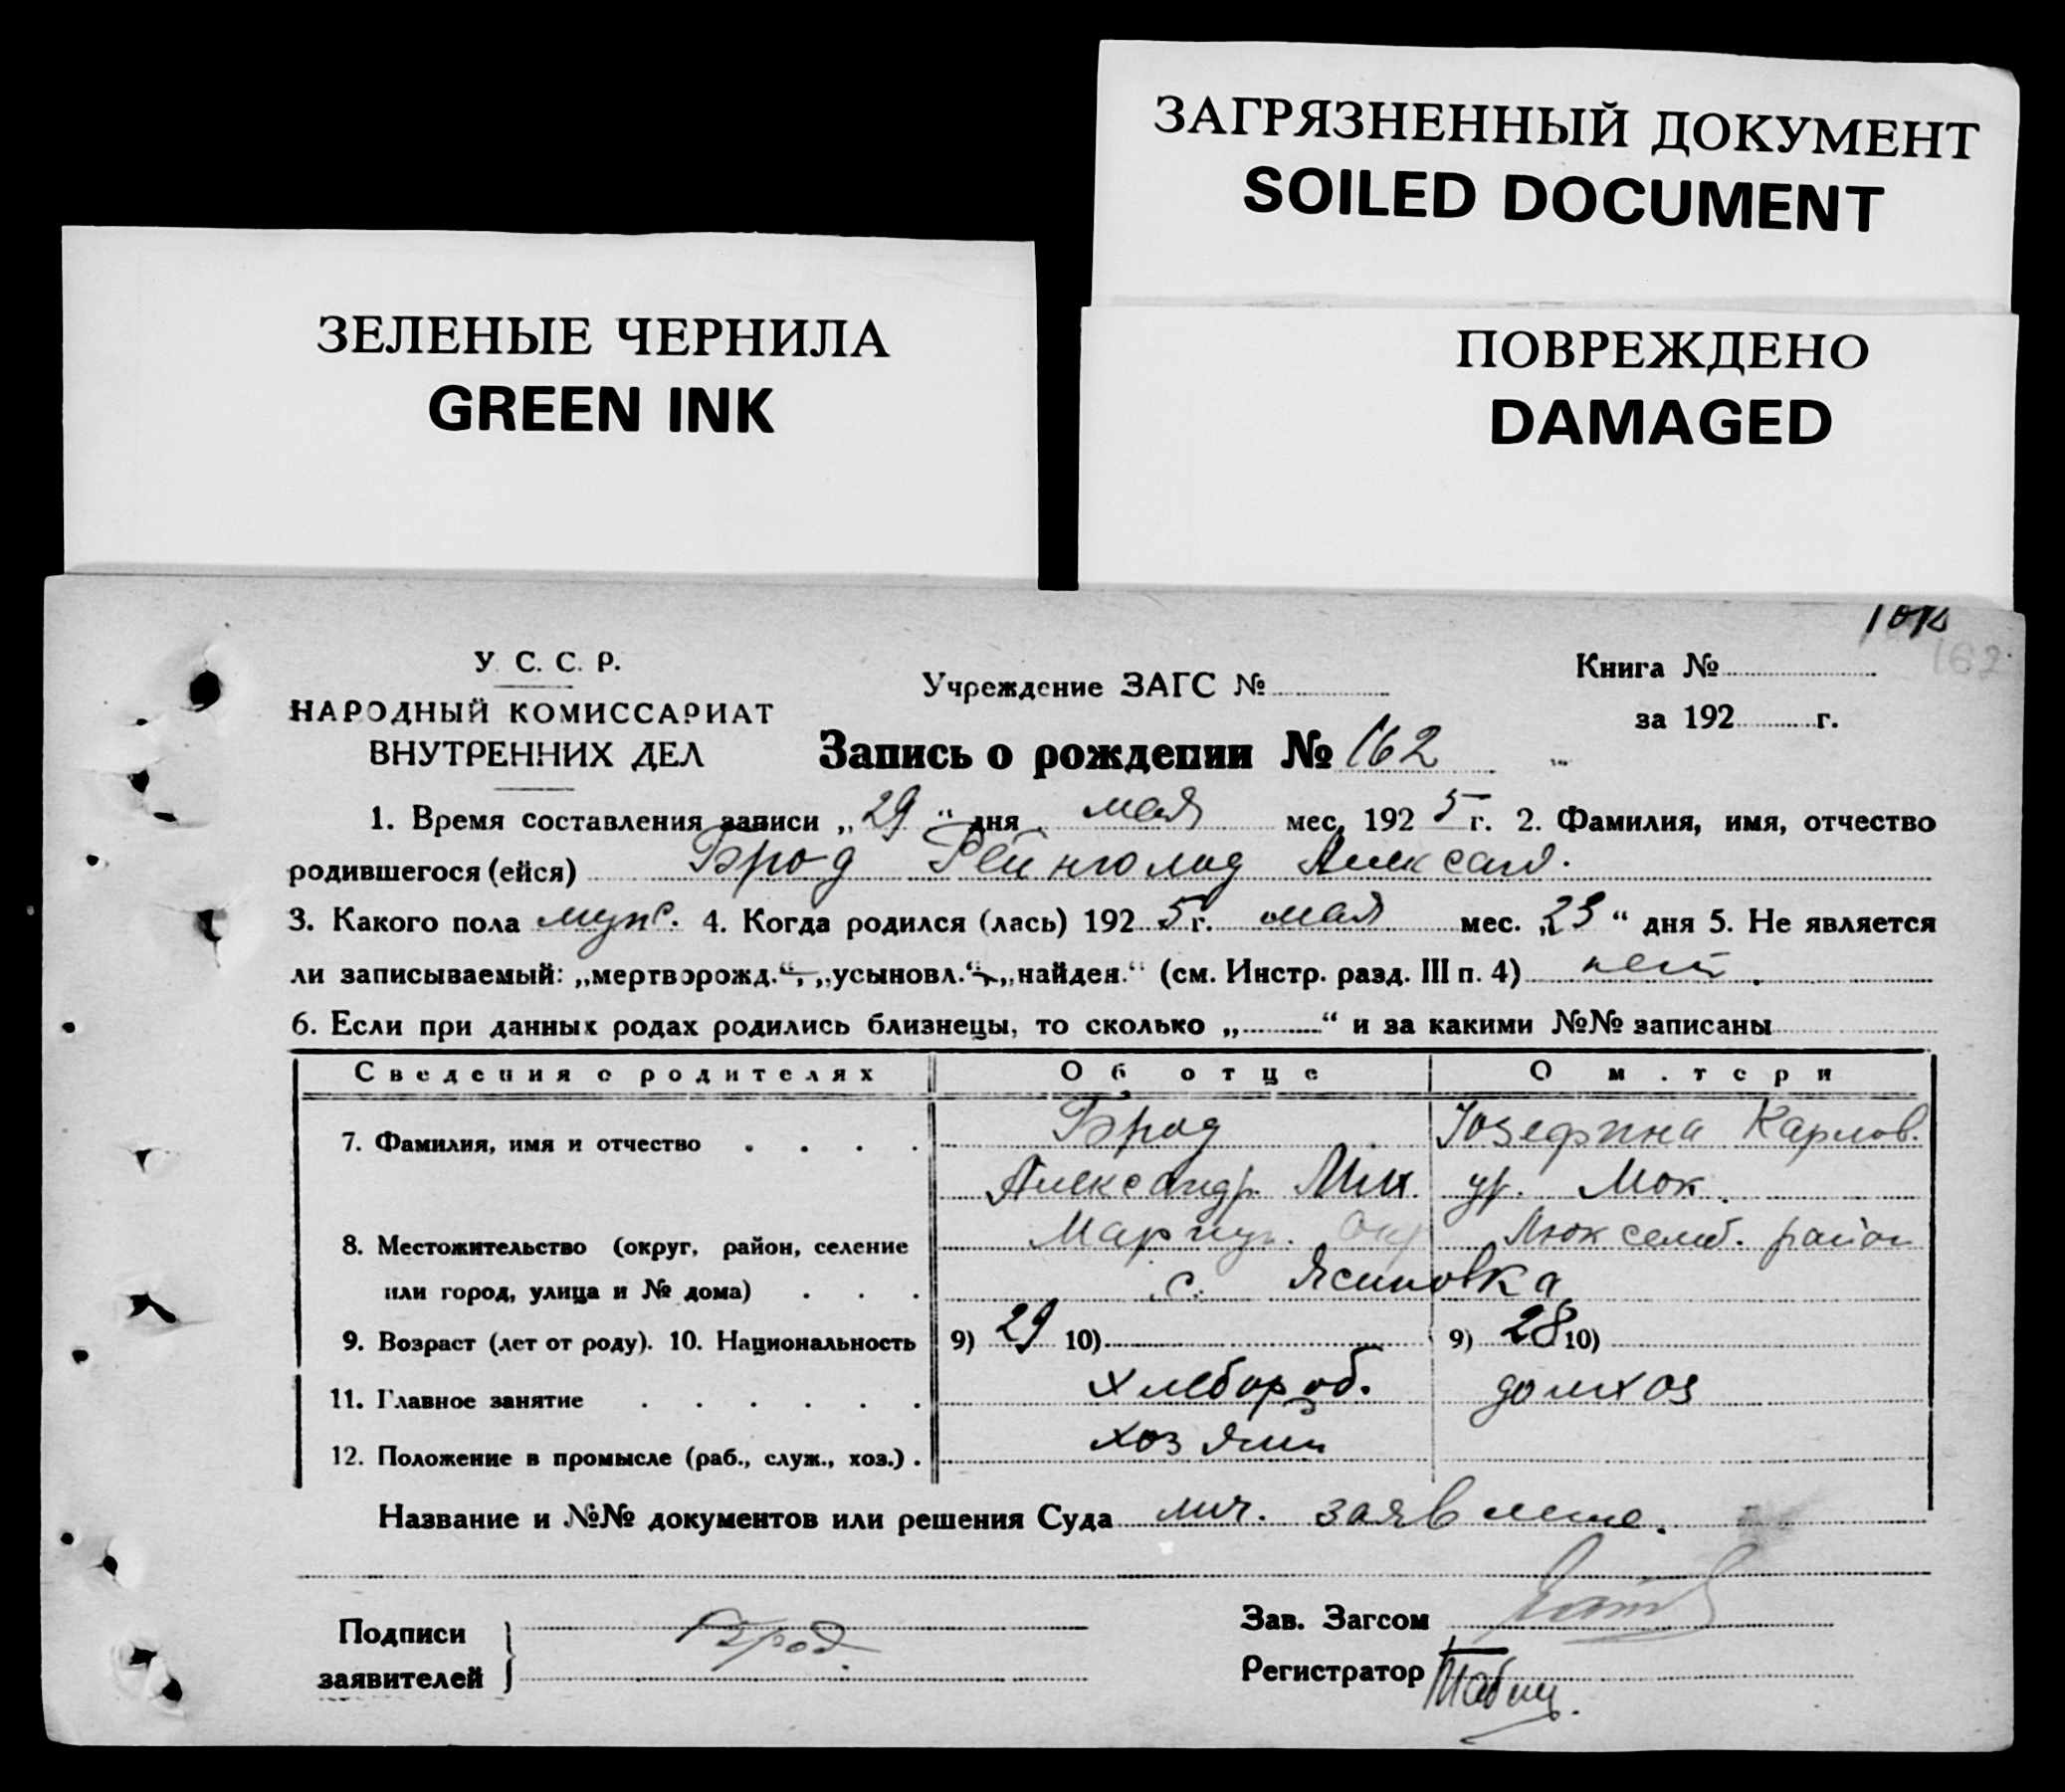 ЗАГРЯЗНЕННЫЙ ДОКУМЕНТ
SOILED DOCUMENT
ЗЕЛЕНЫЕ ЧЕРНИЛА
GREEN INK
ПОВРЕЖДЕНО
DAMAGED
162
У. С. С. Р.
НАРОДНЫЙ КОМИССАРИАТ
ВНУТРЕННИХ ДЕЛ
Учреждение ЗАГС №
Книга №
за 192 г.
Запись о рождении № 162
1. Время составления записи „29“ дня мая мес. 1925 г. 2. Фамилия, имя, отчество
родившегося (ейся) Брод Рейнголод Александ.
3. Какого пола муж. 4. Когда родился (лась) 1925 г. мая мес. „23“ дня 5. Не является
ли записываемый: „мертворожд.“, „усыновл.“, „найден.“ (см. Инстр. разд. III п. 4) нет.
6. Если при данных родах родились близнецы, то сколько „ “ и за какими №№ записаны
Сведения о родителях Об отце О м.тери
7. Фамилия, имя и отчество . . . . Брод Iозефина Карлов.
Александр Мих. ур. Мок.
8. Местожительство (округ, район, селение Мариуп. Окр Люксемб. район
или город, улица и № дома) . . . с. Ясиновка
9. Возраст (лет от роду). 10. Национальность 9) 29 10) 9) 28 10)
11. Главное занятие . . . . . . хлебороб. домхоз
12. Положение в промысле (раб., служ., хоз.) . хозяин
Название и №№ документов или решения Суда лич. заявление.
Подписи
заявителей
Брод.
Зав. Загсом
Регистратор